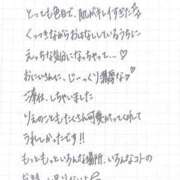 とっても色白で、肌がキレイすぎた
くっつきながらおはなししているうちに
えっちな気分になっちゃって…♡
おにいさんに、じーっくり濃厚な♡
ご奉仕、しちゃいました
りえのこともたくさん可愛がってくれて
うれしかったです!!
もっともっといろんな場所、いろんなコトの